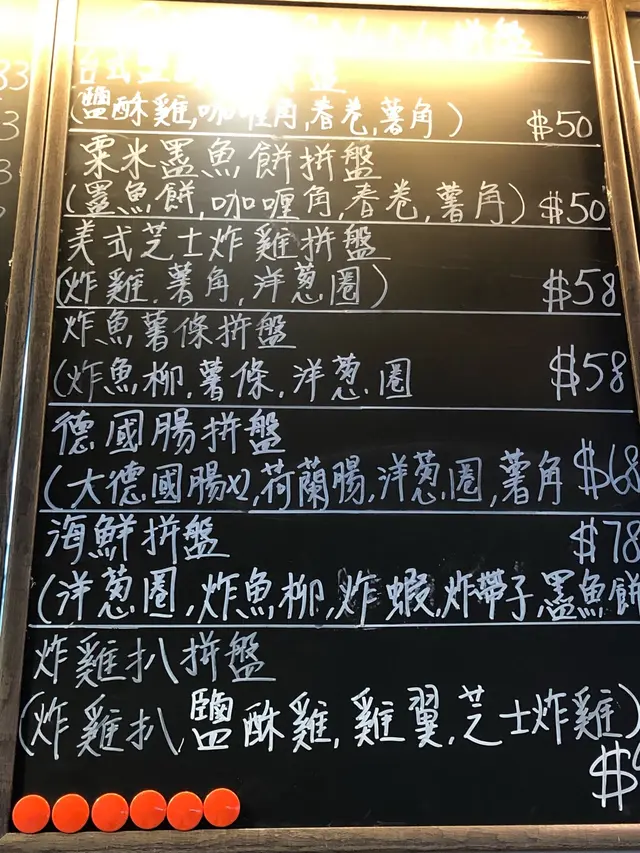 拼盤
拼盤
(鹽酥雞,咖喱角,春卷,薯角) $50
粟米墨魚餅拼盤
(墨魚餅,咖喱角,春卷,薯角) $50
美式芝士炸雞拼盤
(炸雞,薯角,洋葱圈) $58
炸魚薯條拼盤
(炸魚柳,薯條,洋葱圈 $58
德國腸拼盤
(大德國腸x2,荷蘭腸,洋葱圈,薯角 $68
海鮮拼盤 $78
(洋葱圈,炸魚柳,炸蝦,炸帶子,墨魚餅
炸雞扒拼盤
(炸雞扒,鹽酥雞,雞翼,芝士炸雞)